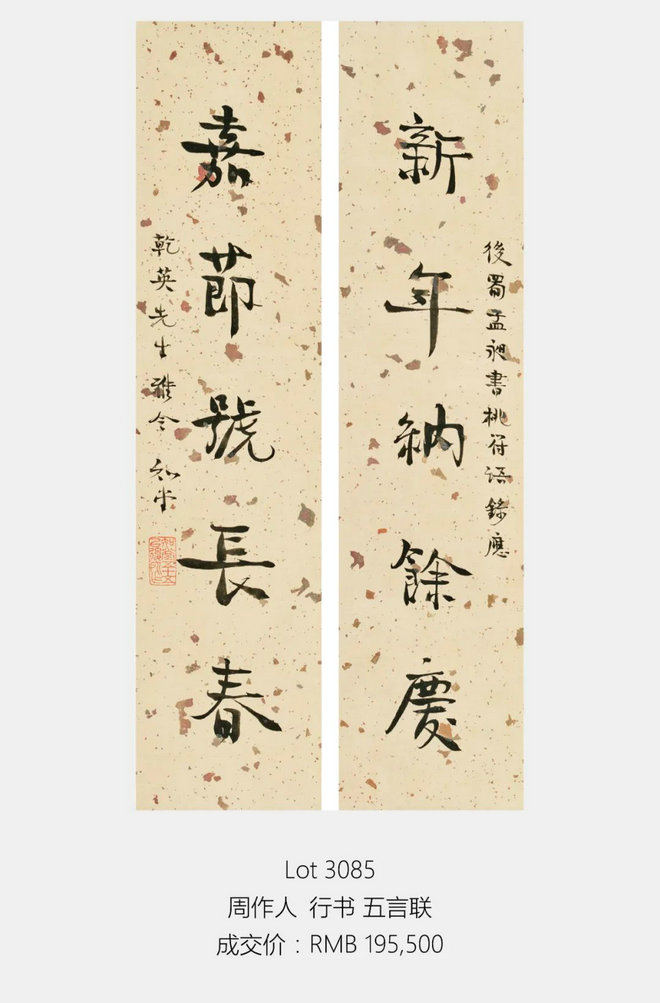 後蜀孟昶書桃符語錄應
新年納餘慶
嘉節號長春
乾英先生雅令 知堂
Lot 3085
周作人 行书 五言联
成交价：RMB 195,500